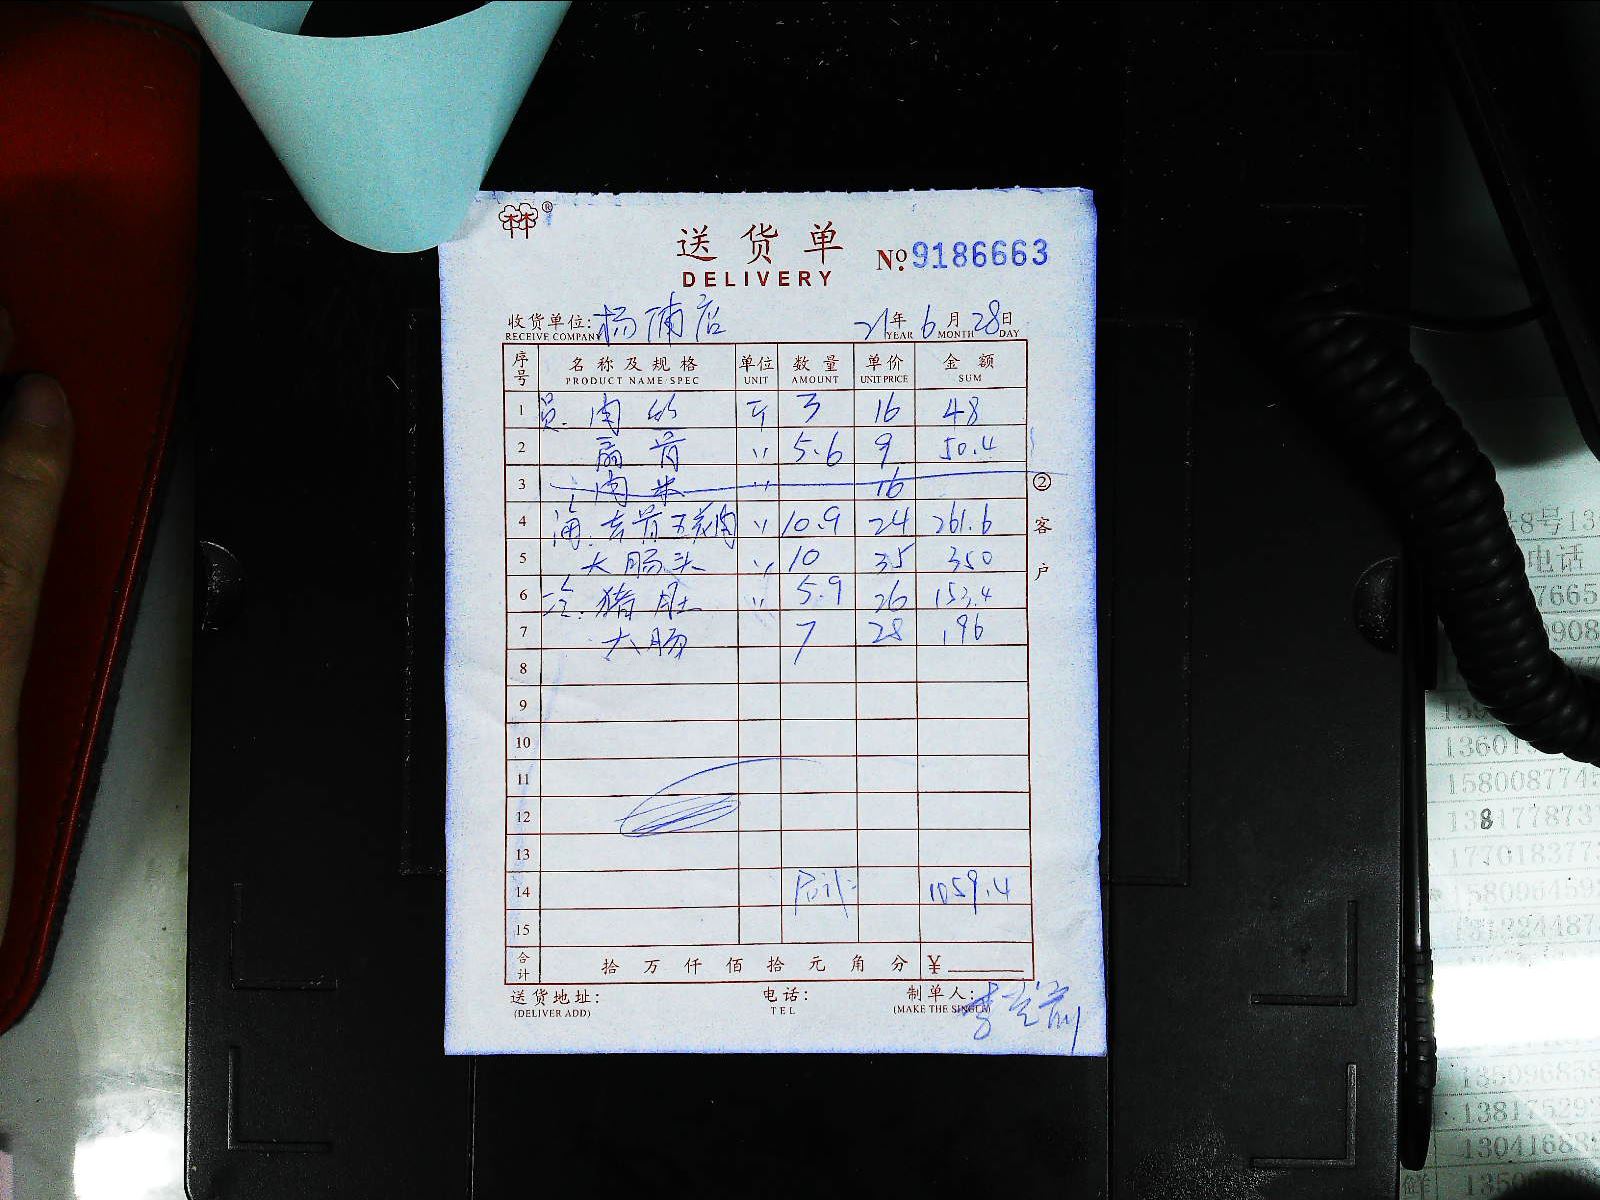 送货单
DELIVERY
№ 9186663
收货单位: 杨浦店 21年 6月 28日
RECEIVE COMPANY YEAR MONTH DAY
序号 名称及规格 单位 数量 单价 金额
PRODUCT NAME/SPEC UNIT AMOUNT UNIT PRICE SUM
1 员. 肉丝 斤 3 16 48
2 扇骨 〃 5.6 9 50.4
3 肉米 〃 16
4 五花肉 〃 10.9 24 261.6
5 大肠头 〃 10 35 350
6 冷: 猪肚 〃 5.9 26 153.4
7 大肠 7 28 196
8
9
10
11
12
13
14 合计: 1059.4
15
合计 拾万仟佰拾元角分 ¥
送货地址: 电话: 制单人:
(DELIVER ADD) TEL (MAKE THE SINGLE)
②客户
8号13
电话
7665
908
13601
1580087745
138177873
177018377
1580964592
151224487
135096858
13817529
13041688